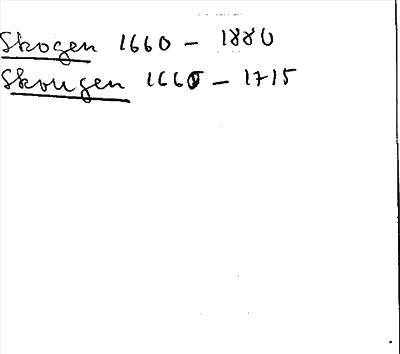 Skogen 1660 - 1880
Skougen 1660 - 1715